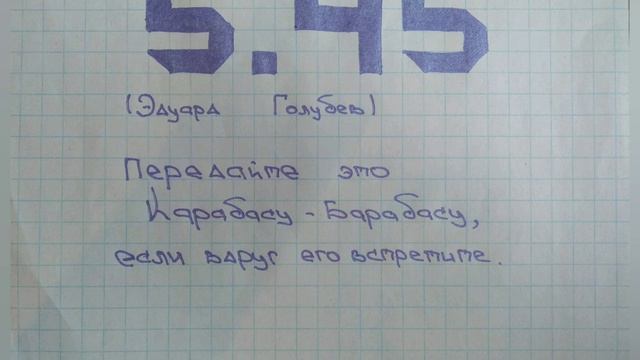 5.45
(Эдуард Голубев)
Передайте это
Карабасу - Барабасу,
если вдруг его встретите.